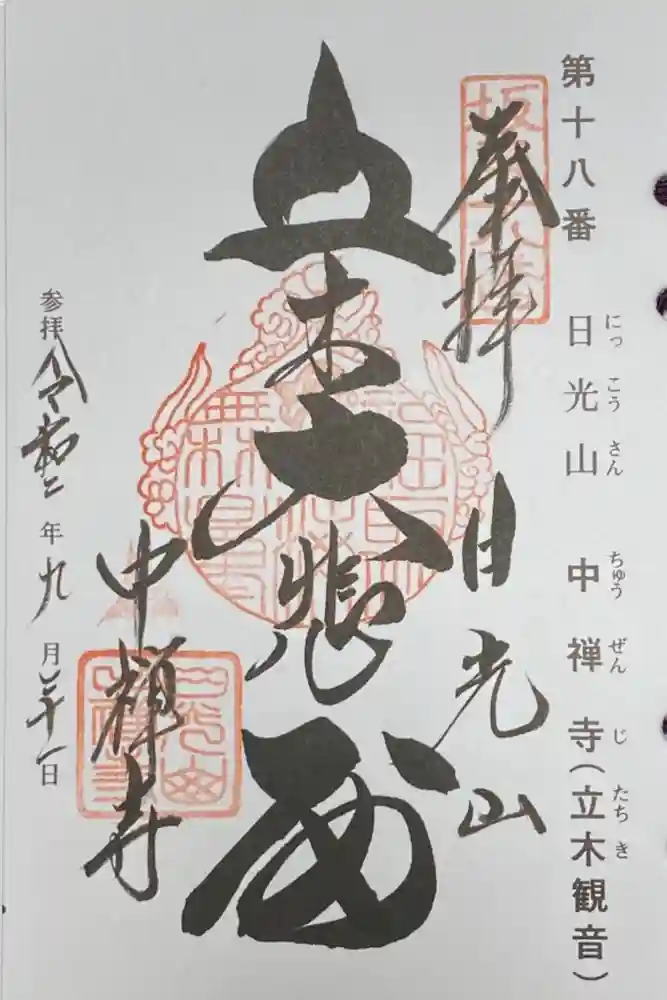 にっ こう さん ちゅう ぜん じ たち き
第十八番 日光山 中禅寺(立木観音)
奉拝 日光山
立木大悲
中禪寺
参拝 令和二年九月二十一日